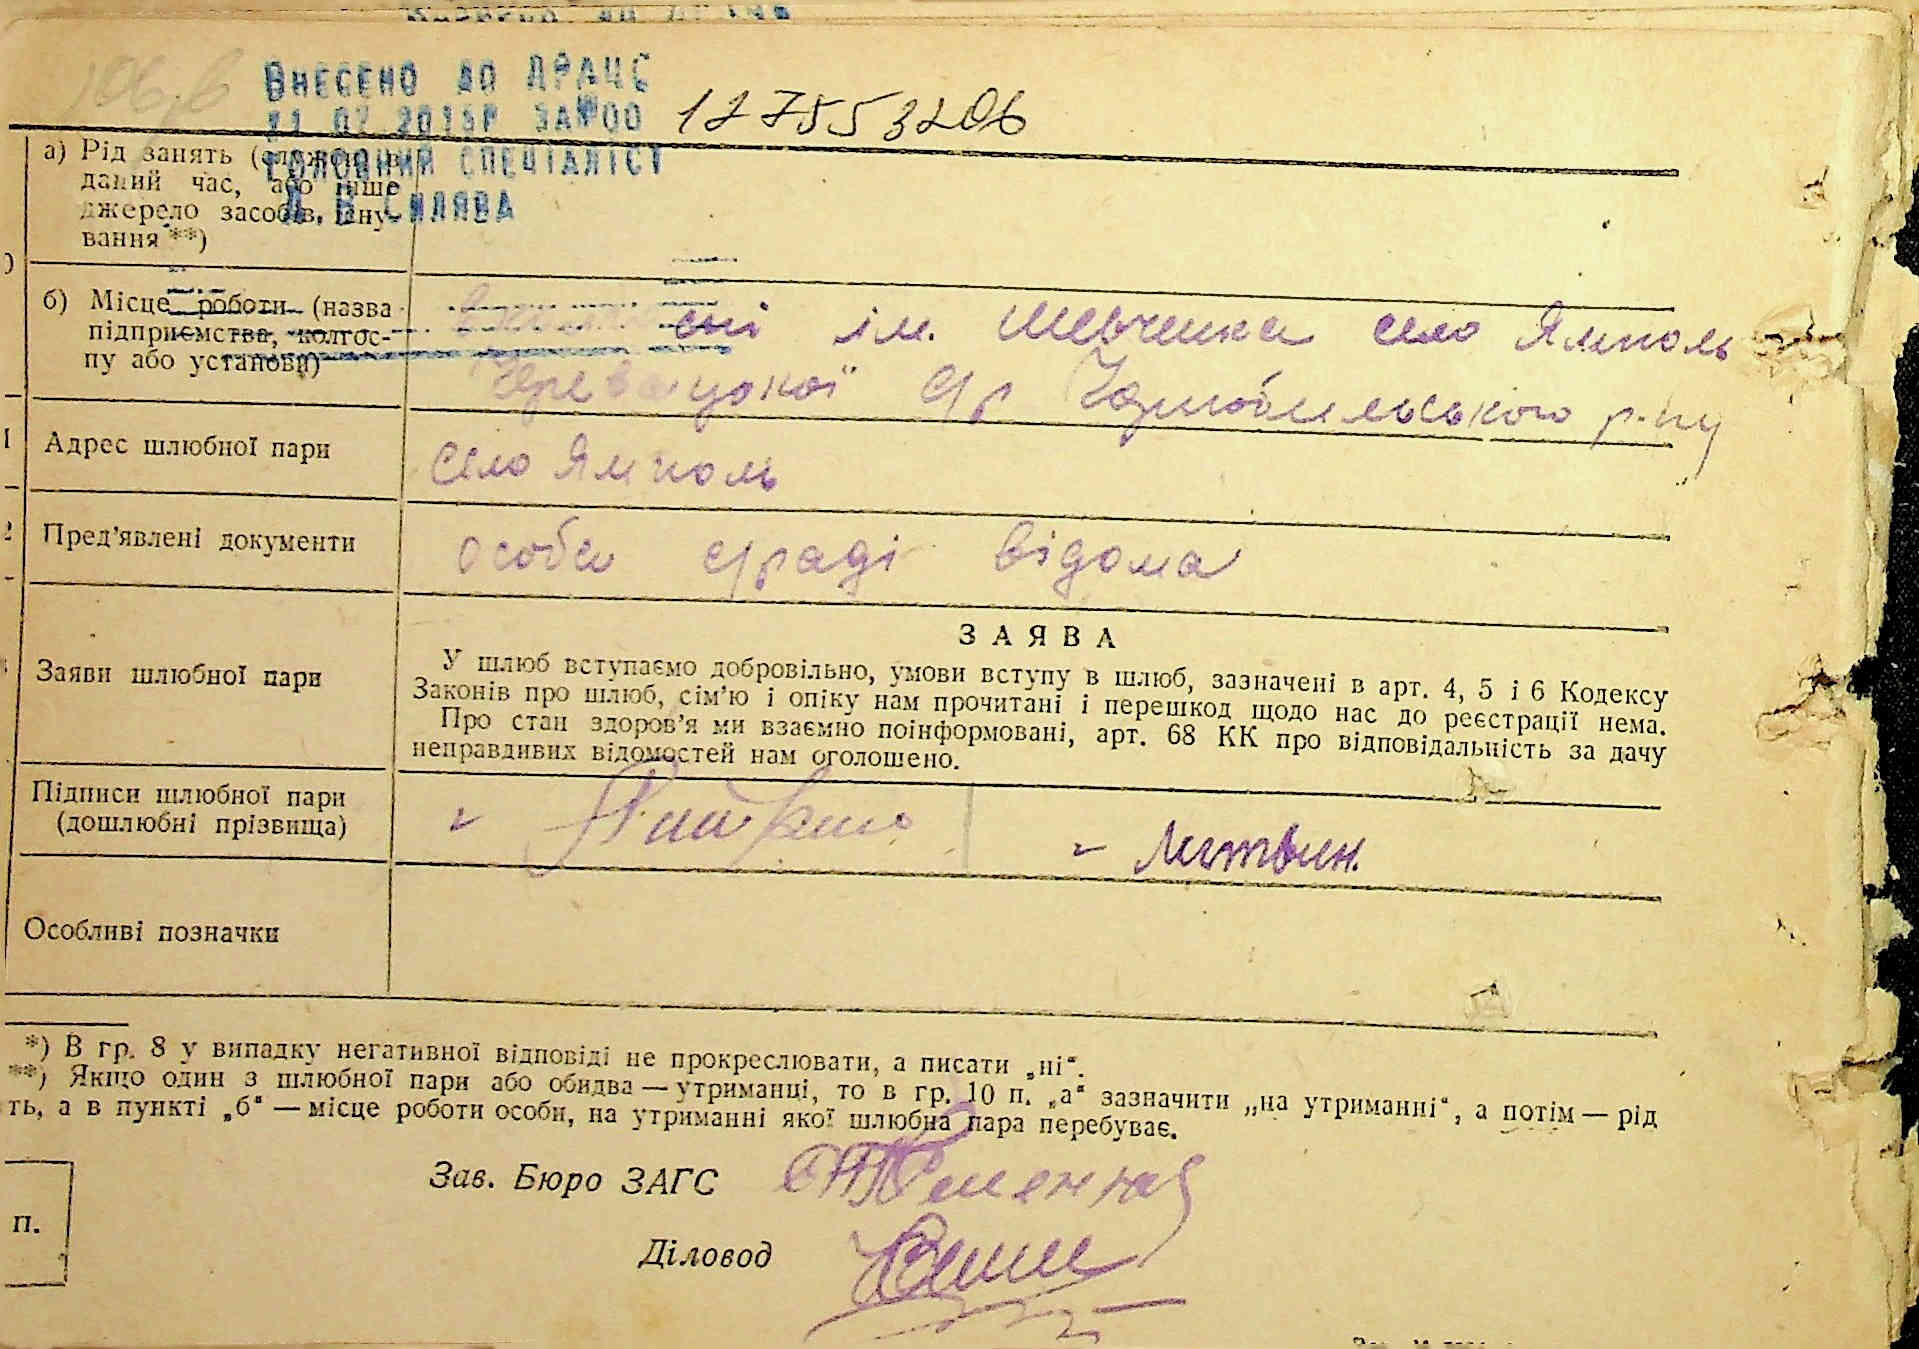 ВНЕСЕНО ДО ДРАЦС
ЗА №00 1277553206
ГОЛОВНИЙ СПЕЦІАЛІСТ
СИЛЯВА
а) Рід занять (в
даний час, або інше
джерело засобів існу-
вання **)
б) Місце роботи (назва
підприємства, колгос-
пу або установи)
ім. Шевченка село Ямполь
с/р Чорнобильського р-ну
Адрес шлюбної пари
село Ямполь
Пред'явлені документи
особи с/раді відома
Заяви шлюбної пари
ЗАЯВА
У шлюб вступаємо добровільно, умови вступу в шлюб, зазначені в арт. 4, 5 і 6 Кодексу
Законів про шлюб, сім'ю і опіку нам прочитані і перешкод щодо нас до реєстрації нема.
Про стан здоров'я ми взаємно поінформовані, арт. 68 КК про відповідальність за дачу
неправдивих відомостей нам оголошено.
Підписи шлюбної пари
(дошлюбні прізвища)
Литвин.
Особливі позначки
*) В гр. 8 у випадку негативної відповіді не прокреслювати, а писати „ні“.
**) Якщо один з шлюбної пари або обидва — утриманці, то в гр. 10 п. „а“ зазначити „на утриманні“, а потім — рід
ть, а в пункті „б“ — місце роботи особи, на утриманні якої шлюбна пара перебуває.
Зав. Бюро ЗАГС
п.
Діловод